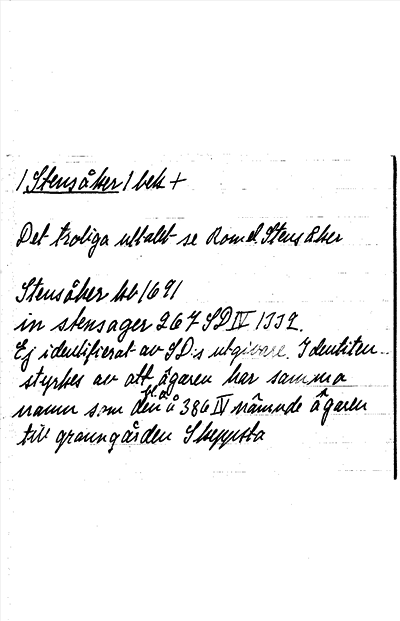 / Stensåker / beb +
Det troliga uttalet se Romel. Stensåker
Stensåker kb 1691
in stensager 267 SD IV 1332.
Ej identifierat av SD:s utgivare. Identiten
styrkes av att ägaren har samma
namn som den på å 386 IV nämnde ägaren
till granngården Skeppsta